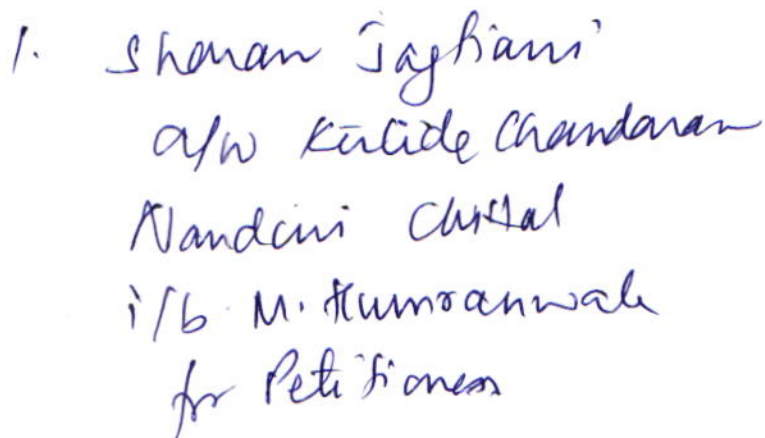 1. Sharan Jagtiani
a/w Kirtida Chandarana
Nandini Chittal
i/b M. Thumranwala
for Petitioners